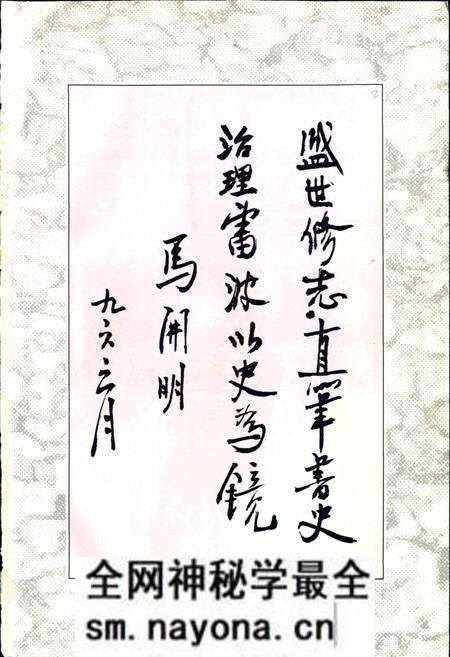 盛世修志·直筆書史
治理雷波以史为镜
馬開明
九六.三月
全网神秘学最全
sm.nayona.cn